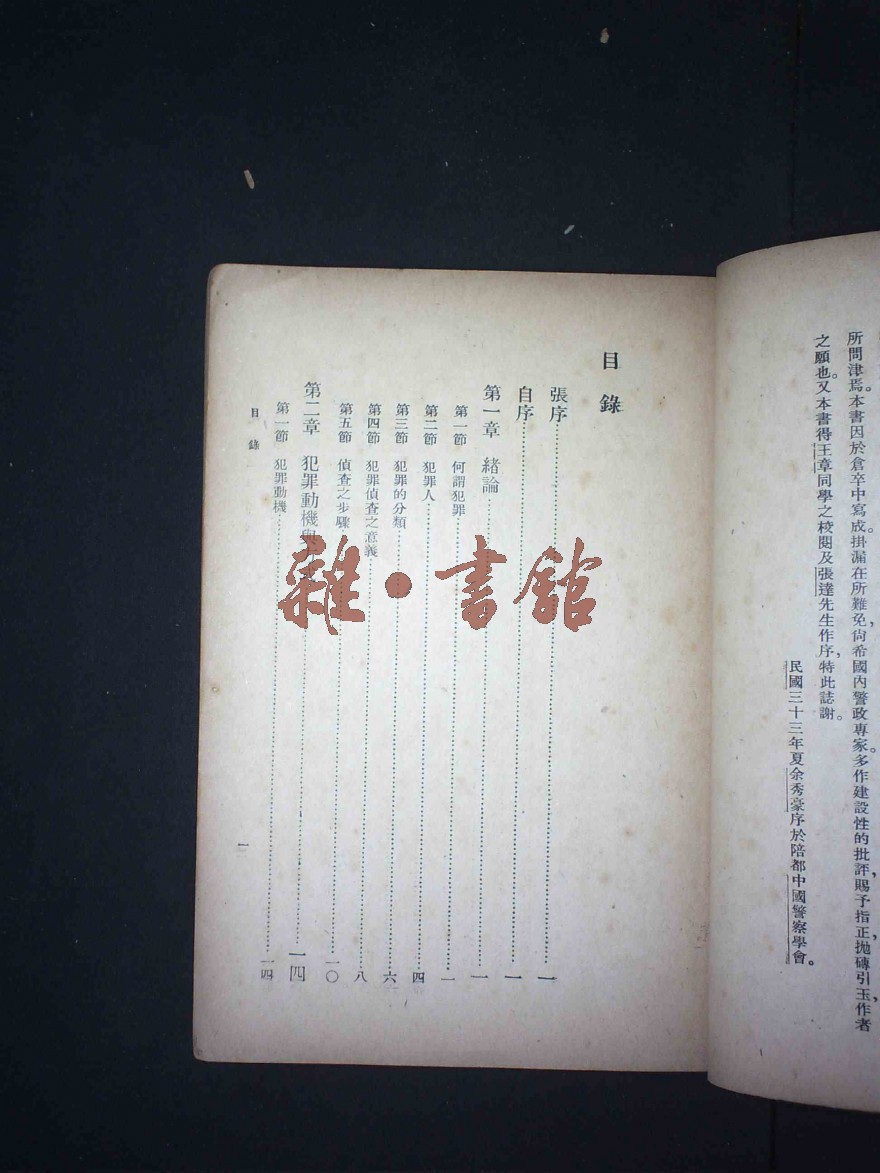 所問津焉。本書因於倉卒中寫成，掛漏在所難免，尙希國內警政專家多作建設性的批評，賜予指正，拋磚引玉，作者
之願也。又本書得王章同學之校閱及張達先生作序，特此誌謝。
民國三十三年夏余秀豪序於陪都中國警察學會。
目錄
張序……一
自序……一
第一章 緒論……一
第一節 何謂犯罪……一
第二節 犯罪人……四
第三節 犯罪的分類……六
第四節 犯罪偵查之意義……八
第五節 偵查之步驟……一〇
第二章 犯罪動機與……一四
第一節 犯罪動機……一四
目錄
一
雜·書館